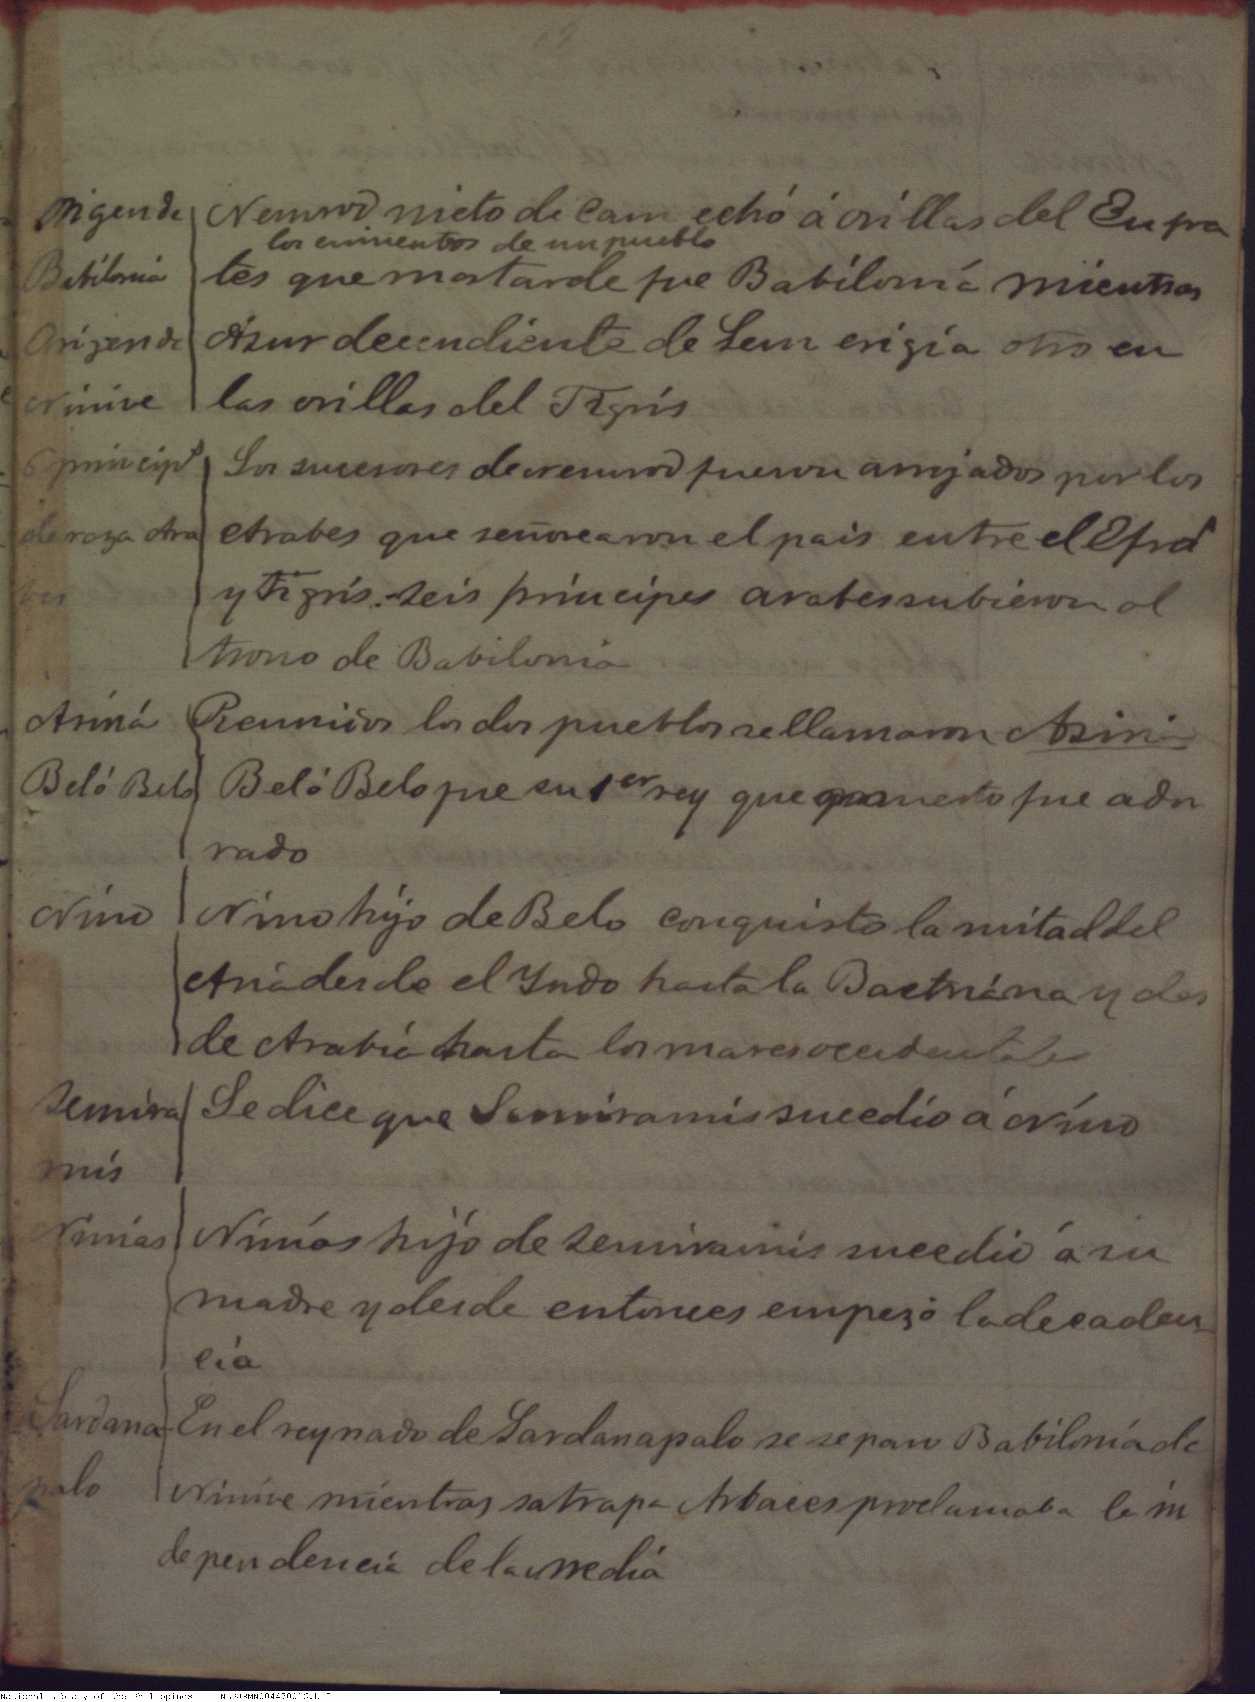 Origende Nemrod nieto de Cam echó á orillas del Eupra
los cimientos de un pueblo
Babilonia tes que mastarde fue Babilonia mientras
Origende Asur decendiente de Sem erigia otro en
Ninive las orillas del Tigris
6 princip.s Los sucesores de Nemrod fueron arrojados por los
de raza Ara Arabes que señorearon el pais entre el Efra
bes y Tigris. Seis principes arabes subieron al
trono de Babilonia
Asiriá Reunidos los dos pueblos se llamaron Asiria
Beló Belo Beló Belo fue su 1er rey que muerto fue ado
rado
Nino Nino hijo de Belo conquisto la mitad del
Asia desde el Yndo hasta la Bactriána y des
de Arabia hasta los mares occidentales
Semira Se dice que Semiramis sucedio á Nino
mis
Niniás Niniás hijo de Semiramis sucedió á su
madre y desde entonces empezó la decaden-
cia
Sardana En el reynado de Sardanapalo se separo Babilonia de
palo Ninive mientras satrapa Arbaces proclamaba la in
dependencia de la Media
National Library of the Philippines